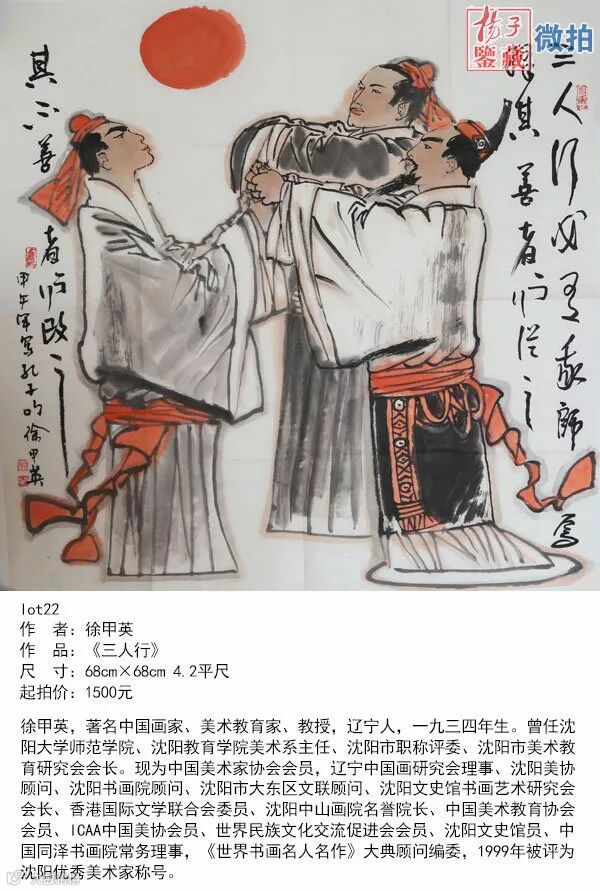 杨子
鑒藏
微拍
三人行必有我師焉
其善者而從之
其不善
者而改之
甲午年寫孔子句徐甲英
lot22
作 者：徐甲英
作 品：《三人行》
尺 寸：68cm×68cm 4.2平尺
起拍价：1500元
徐甲英，著名中国画家、美术教育家、教授，辽宁人，一九三四年生。曾任沈
阳大学师范学院、沈阳教育学院美术系主任、沈阳市职称评委、沈阳市美术教
育研究会会长。现为中国美术家协会会员，辽宁中国画研究会理事、沈阳美协
顾问、沈阳书画院顾问、沈阳市大东区文联顾问、沈阳文史馆书画艺术研究会
会长、香港国际文学联合会委员、沈阳中山画院名誉院长、中国美术教育协会
会员、ICAA中国美协会员、世界民族文化交流促进会会员、沈阳文史馆员、中
国同泽书画院常务理事，《世界书画名人名作》大典顾问编委，1999年被评为
沈阳优秀美术家称号。